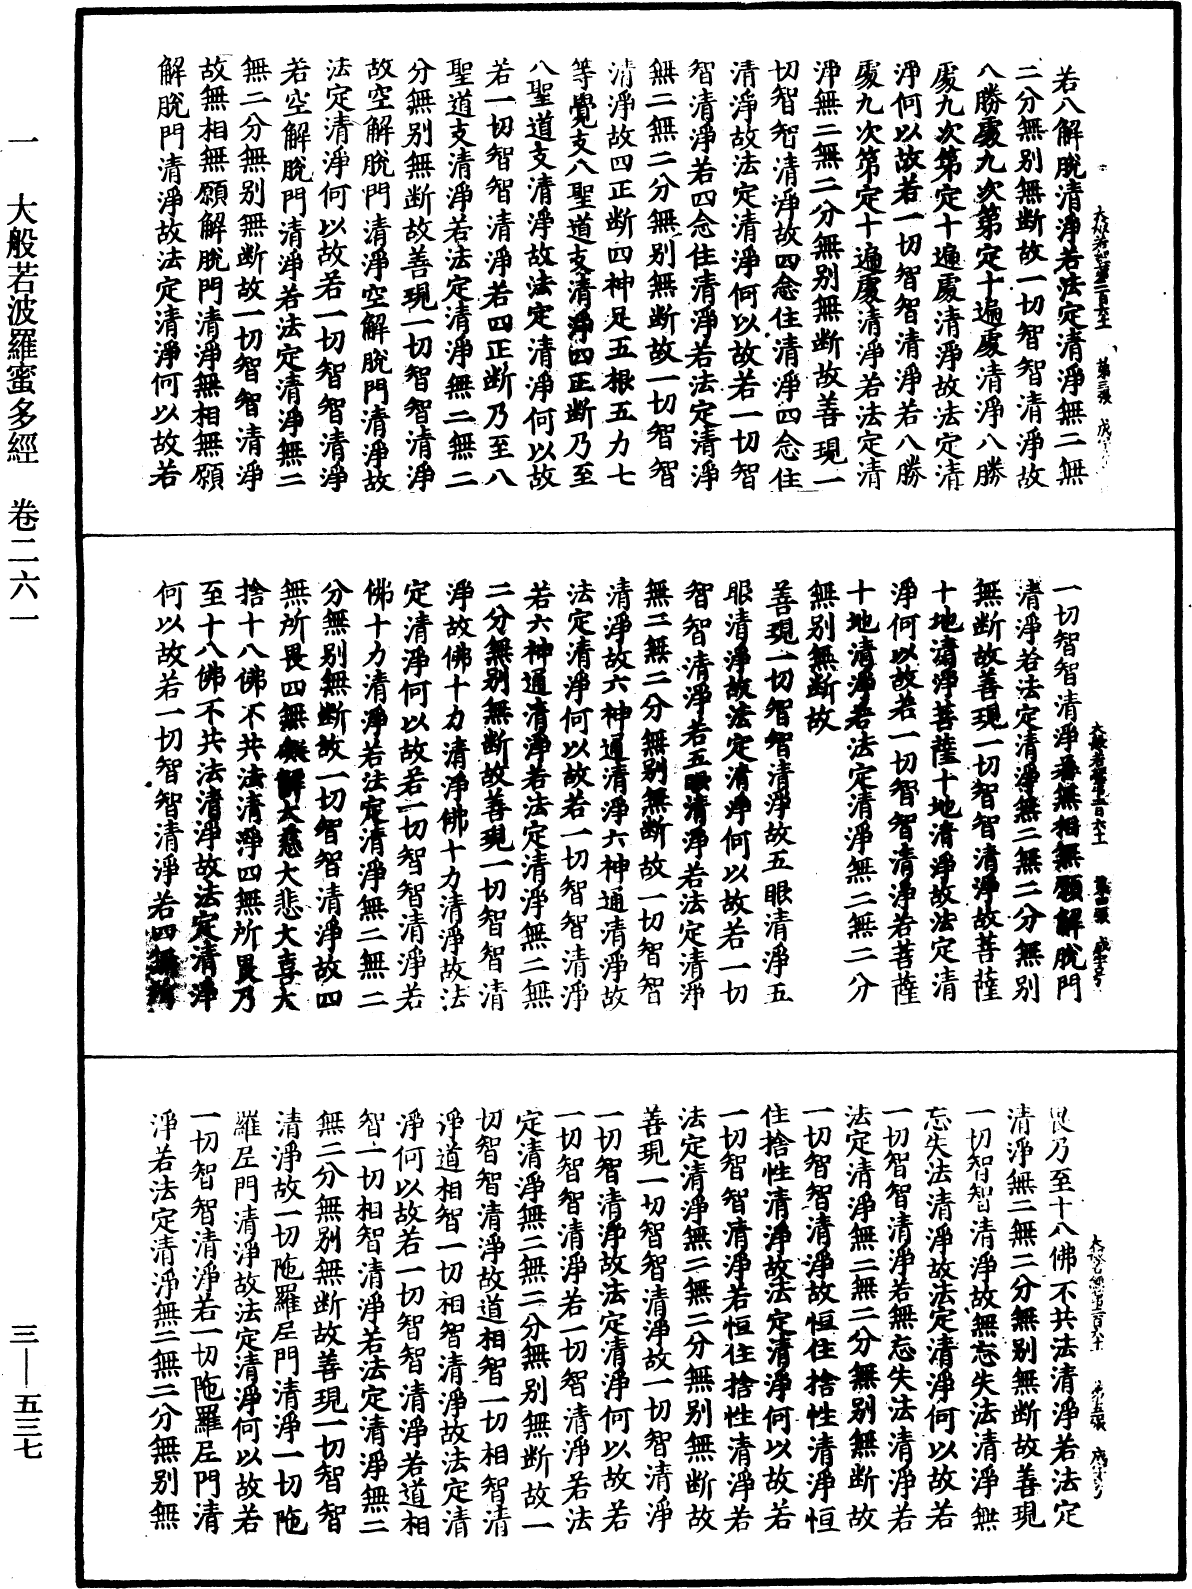 一 大般若波羅蜜多經 卷二六一 三—五三七
若八解脫清淨若法定清淨無二無
二分無別無斷故一切智智清淨故
八勝處九次第定十遍處清淨八勝
處九次第定十遍處清淨故法定清
淨何以故若一切智智清淨若八勝
處九次第定十遍處清淨若法定清
淨無二無二分無別無斷故善現一
切智智清淨故四念住清淨四念住
清淨故法定清淨何以故若一切智
智清淨若四念住清淨若法定清淨
無二無二分無別無斷故一切智智
清淨故四正斷四神足五根五力七
等覺支八聖道支清淨四正斷乃至
八聖道支清淨故法定清淨何以故
若一切智智清淨若四正斷乃至八
聖道支清淨若法定清淨無二無二
分無別無斷故善現一切智智清淨
故空解脫門清淨空解脫門清淨故
法定清淨何以故若一切智智清淨
若空解脫門清淨若法定清淨無二
無二分無別無斷故一切智智清淨
故無相無願解脫門清淨無相無願
解脫門清淨故法定清淨何以故若
一切智智清淨若無相無願解脫門
清淨若法定清淨無二無二分無別
無斷故善現一切智智清淨故菩薩
十地清淨菩薩十地清淨故法定清
淨何以故若一切智智清淨若菩薩
十地清淨若法定清淨無二無二分
無別無斷故
善現一切智智清淨故五眼清淨五
眼清淨故法定清淨何以故若一切
智智清淨若五眼清淨若法定清淨
無二無二分無別無斷故一切智智
清淨故六神通清淨六神通清淨故
法定清淨何以故若一切智智清淨
若六神通清淨若法定清淨無二無
二分無別無斷故善現一切智智清
淨故佛十力清淨佛十力清淨故法
定清淨何以故若一切智智清淨若
佛十力清淨若法定清淨無二無二
分無別無斷故一切智智清淨故四
無所畏四無礙解大慈大悲大喜大
捨十八佛不共法清淨四無所畏乃
至十八佛不共法清淨故法定清淨
何以故若一切智智清淨若四無所
畏乃至十八佛不共法清淨若法定
清淨無二無二分無別無斷故善現
一切智智清淨故無忘失法清淨無
忘失法清淨故法定清淨何以故若
一切智智清淨若無忘失法清淨若
法定清淨無二無二分無別無斷故
一切智智清淨故恒住捨性清淨恒
住捨性清淨故法定清淨何以故若
一切智智清淨若恒住捨性清淨若
法定清淨無二無二分無別無斷故
善現一切智智清淨故一切智清淨
一切智清淨故法定清淨何以故若
一切智智清淨若一切智清淨若法
定清淨無二無二分無別無斷故一
切智智清淨故道相智一切相智清
淨道相智一切相智清淨故法定清
淨何以故若一切智智清淨若道相
智一切相智清淨若法定清淨無二
無二分無別無斷故善現一切智智
清淨故一切陁羅尼門清淨一切陁
羅尼門清淨故法定清淨何以故若
一切智智清淨若一切陁羅尼門清
淨若法定清淨無二無二分無別無